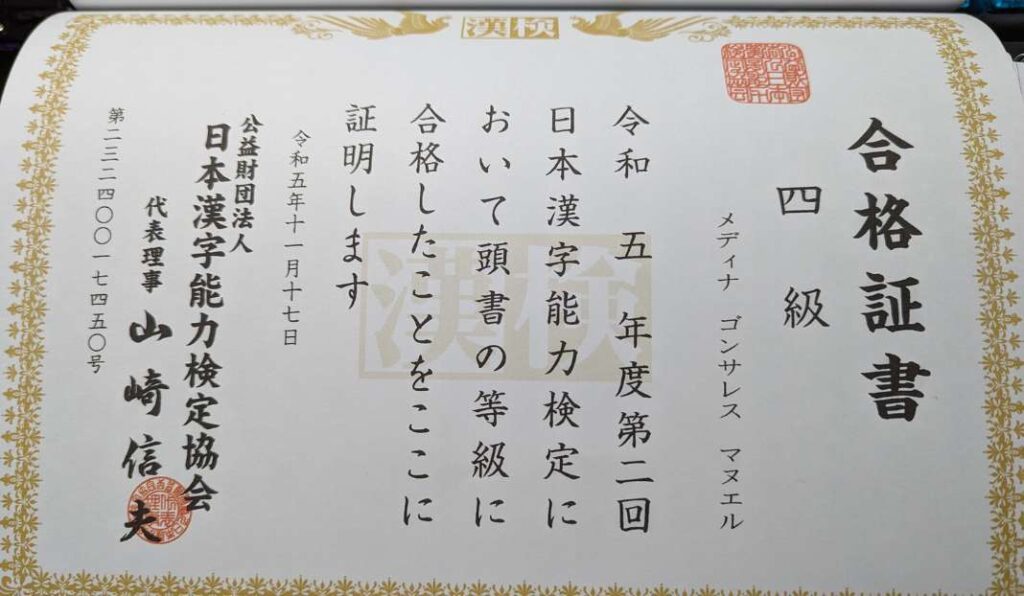 漢検
合格証書
四級
メディナ ゴンサレス マヌエル
令和 五 年度第二回
日本漢字能力検定に
おいて頭書の等級に
合格したことをここに
証明します
令和五年十一月十七日
公益財団法人
日本漢字能力検定協会
代表理事 山崎信夫
第二三二四〇〇一七四五〇号
漢検